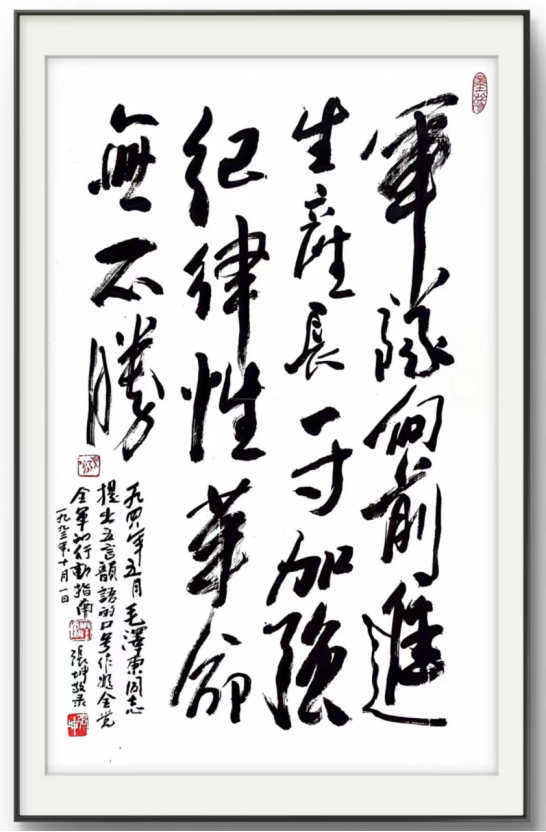 軍隊向前進
生產長一寸加強
紀律性革命
無不勝
一九四八年五月毛澤東同志
提出五言韻語的口号作为全党
全軍的行動指南 張坤敬录
一九九三年十月一日